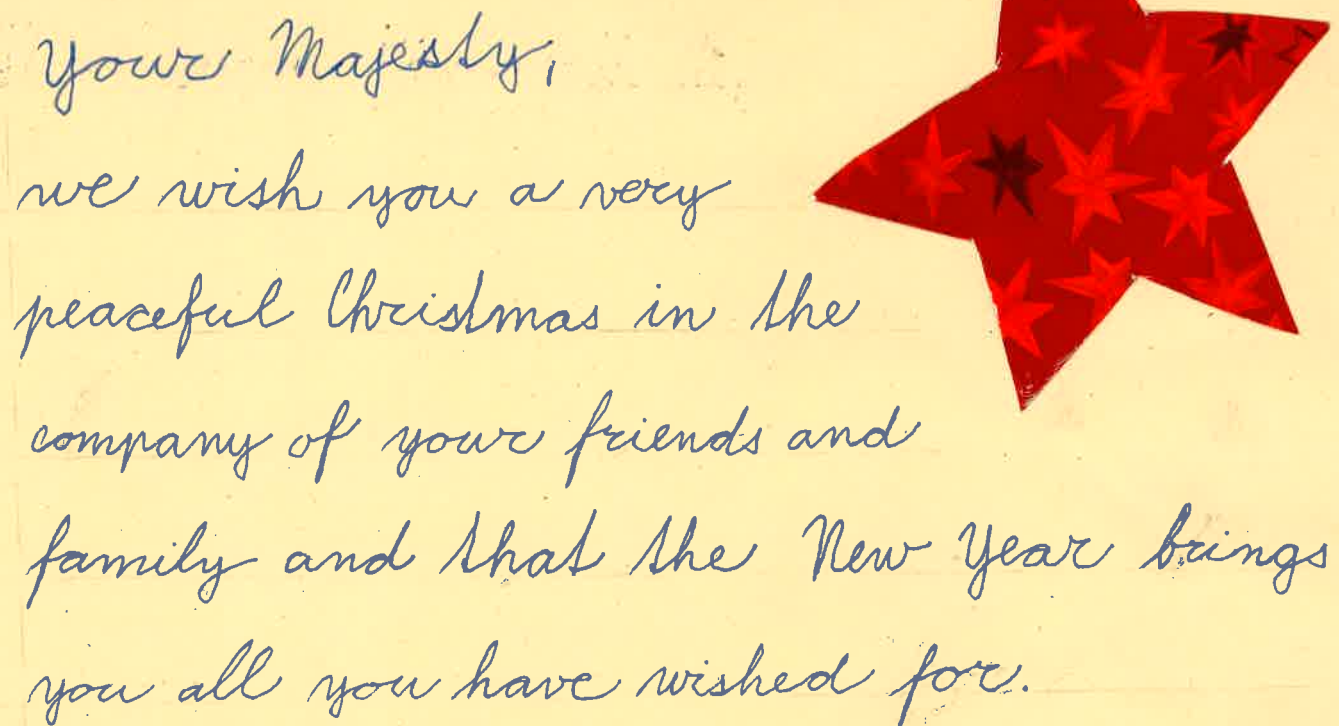 Your Majesty,
we wish you a very
peaceful Christmas in the
company of your friends and
family and that the New Year brings
you all you have wished for.